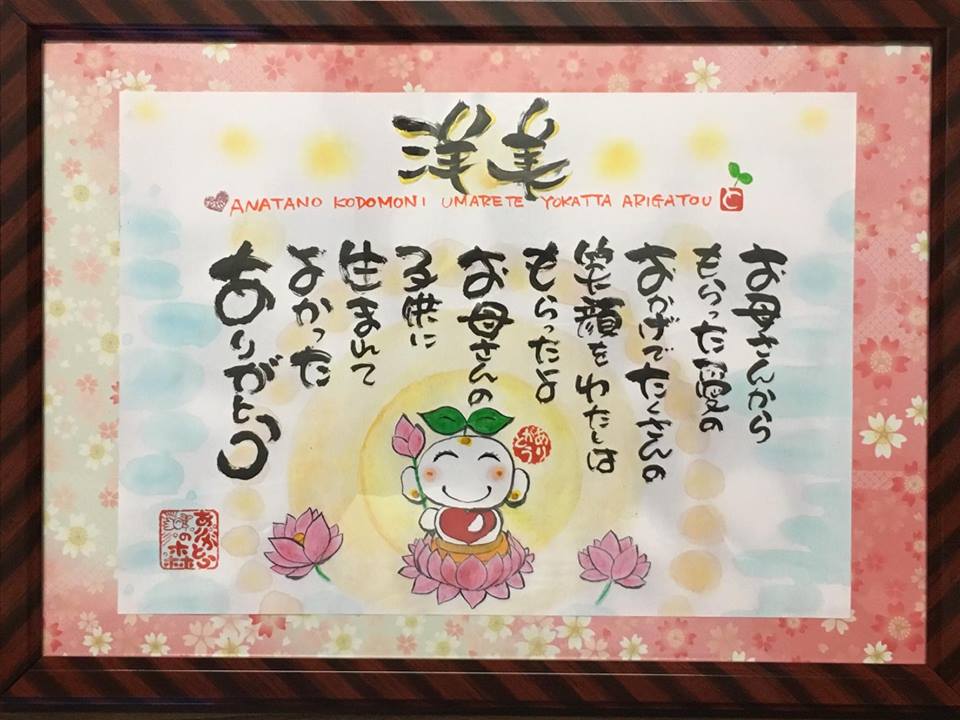 洋美
ANATANO KODOMONI UMARETE YOKATTA ARIGATOU
と
お母さんから
もらった愛の
おかげでたくさんの
笑顔をわたしは
もらったよ
お母さんの
子供に
生まれて
よかった
ありがとう
ありがとう
ありがとう
の森